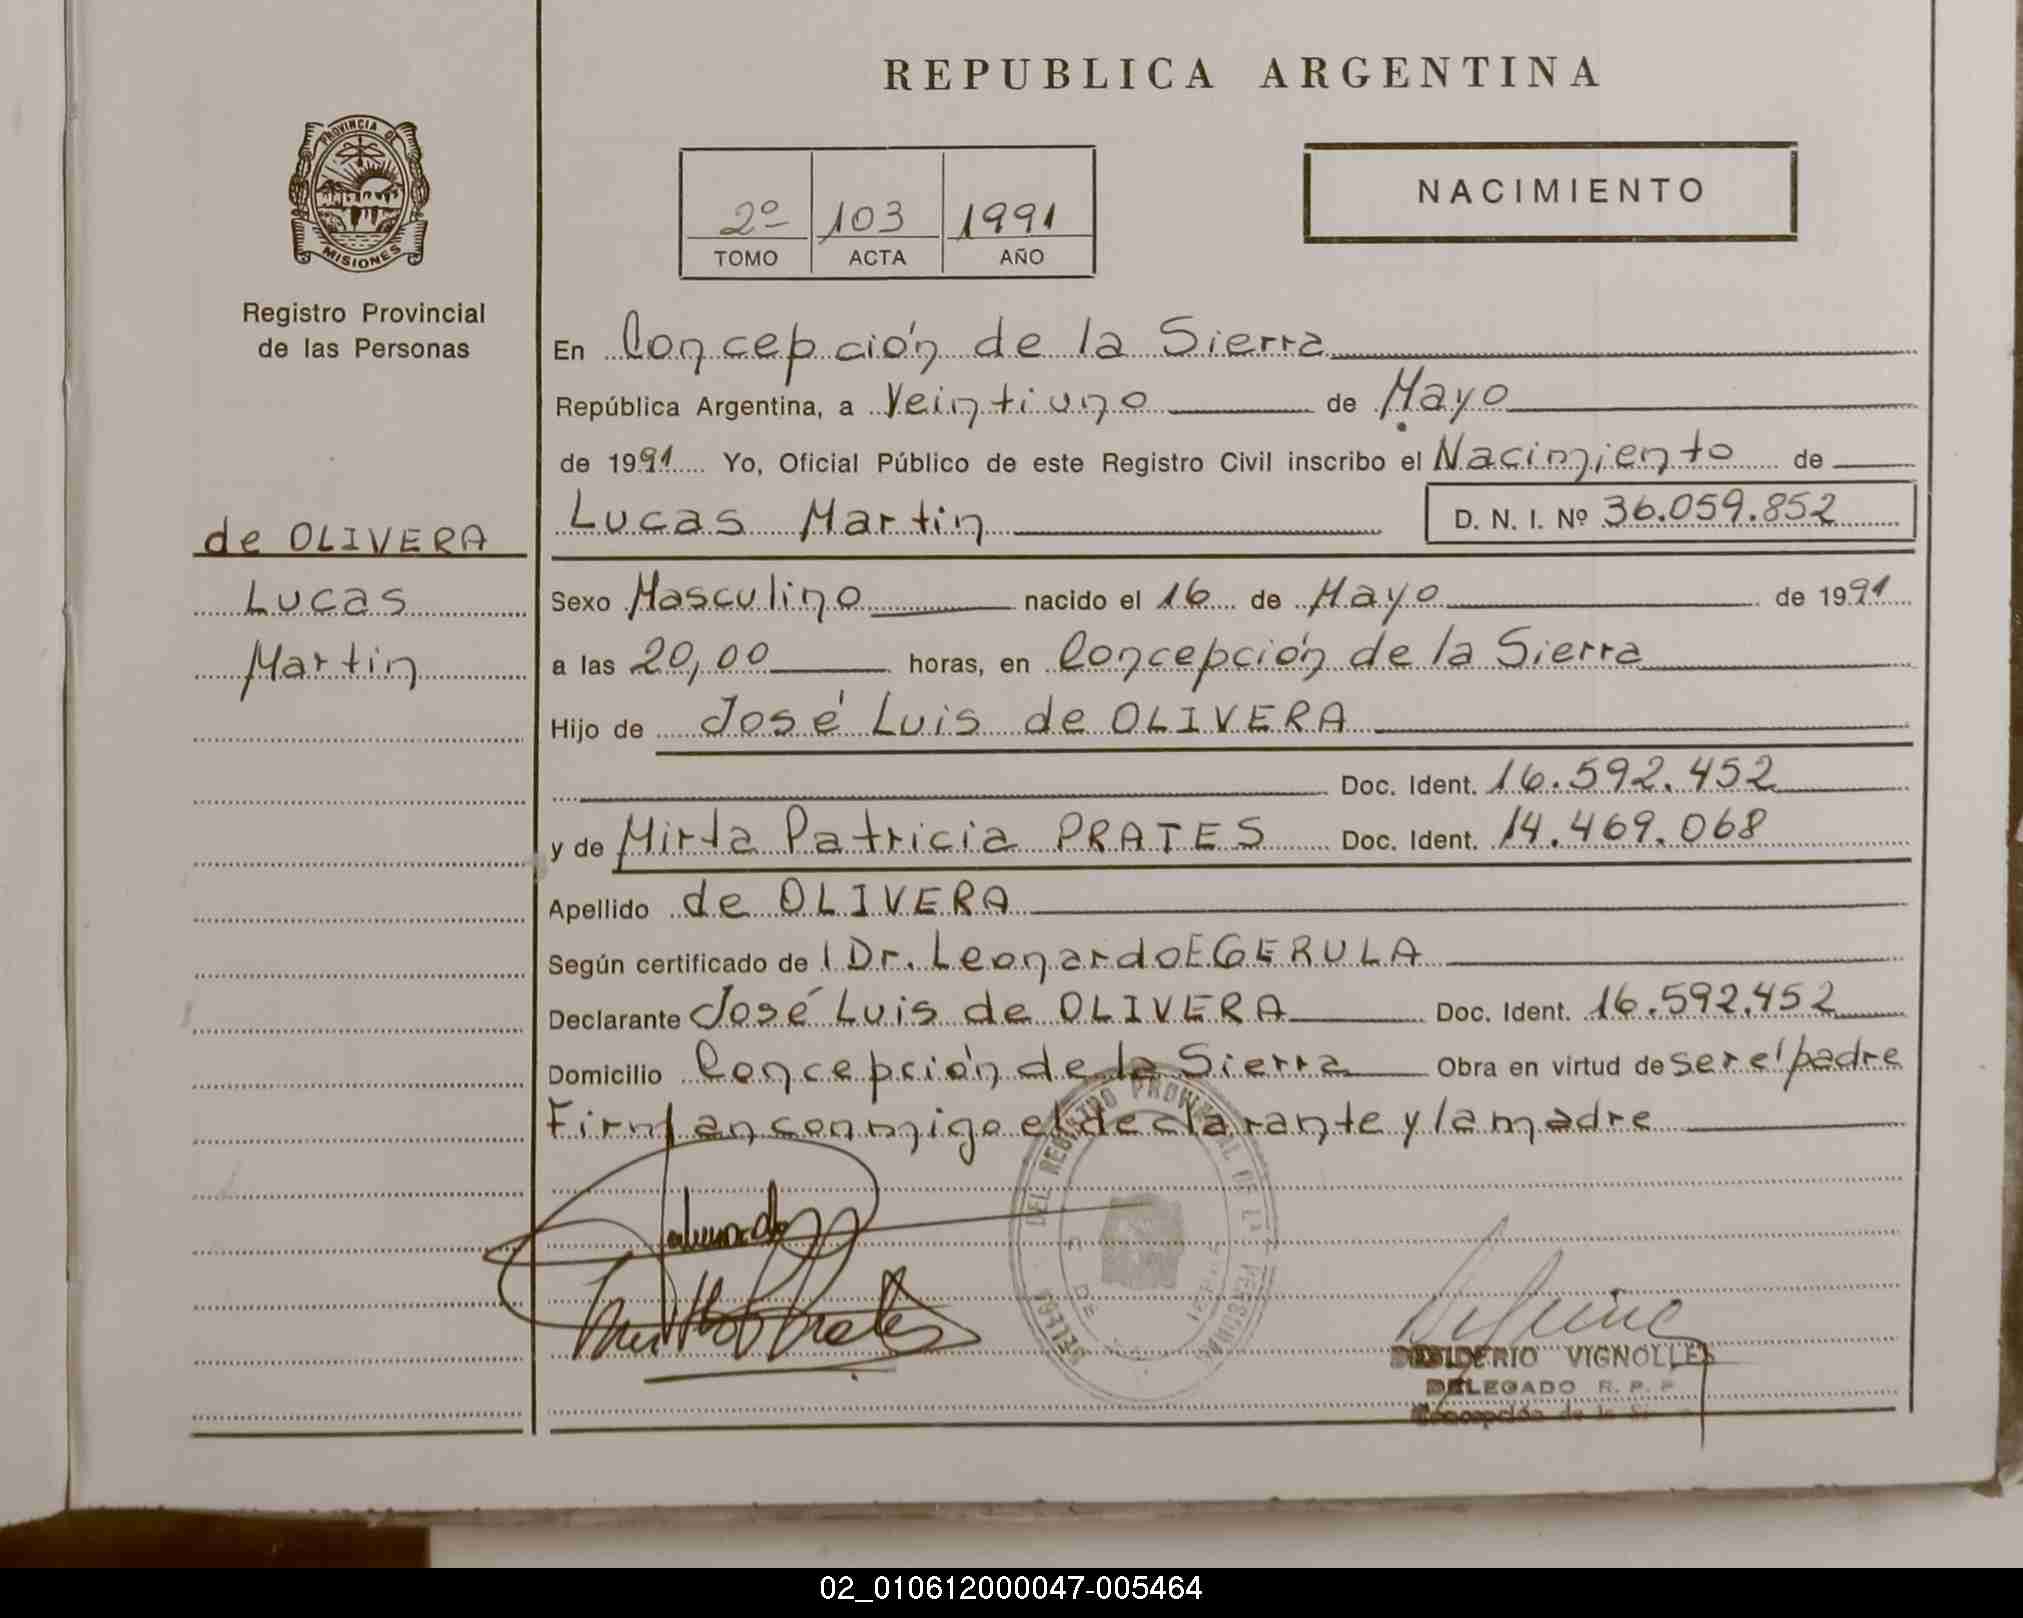 REPUBLICA ARGENTINA
PROVINCIA DE
MISIONES
Registro Provincial
de las Personas
NACIMIENTO
2º 103 1991
TOMO ACTA AÑO
En Concepción de la Sierra
República Argentina, a Veintiuno de Mayo
de 1991 Yo, Oficial Público de este Registro Civil inscribo el Nacimiento de
Lucas Martin D. N. I. Nº 36.059.852
de OLIVERA
Lucas
Martin
Sexo Masculino nacido el 16 de Mayo de 1991
a las 20,00 horas, en Concepción de la Sierra
Hijo de José Luis de OLIVERA
Doc. Ident. 16.592.452
y de Mirta Patricia PRATES Doc. Ident. 14.469.068
Apellido de OLIVERA
Según certificado de l Dr. Leonardo E GERULA
Declarante José Luis de OLIVERA Doc. Ident. 16.592.452
Domicilio Concepción de la Sierra Obra en virtud de ser el padre
Firman conmigo el declarante y la madre
DEL REGISTRO PROVINCIAL DE LAS PERSONAS
DESIDERIO VIGNOLLES
DELEGADO R. P. P.
Concepción de la
02_010612000047-005464